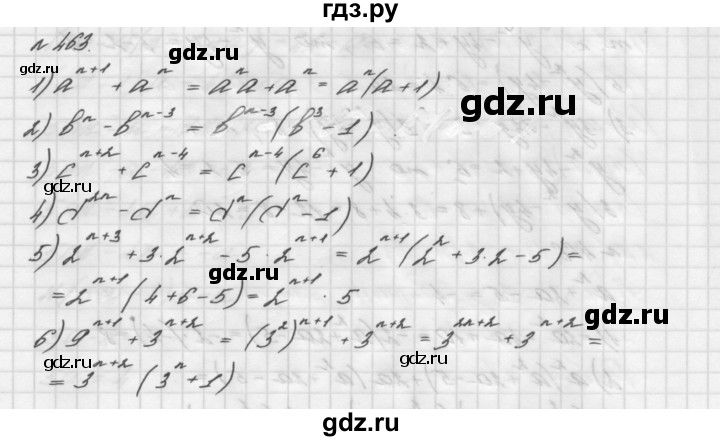 гдз.ру
№ 463.
gdz.ru
1) aⁿ⁺¹ + aⁿ = aⁿa + aⁿ = aⁿ(a+1)
gdz.ru
gdz.ru
2) bⁿ - bⁿ⁻³ = bⁿ⁻³(b³ - 1)
3) cⁿ⁺² + cⁿ⁻⁴ = cⁿ⁻⁴(c⁶ + 1)
gdz.ru
4) d²ⁿ - dⁿ = dⁿ(dⁿ - 1)
5) 2ⁿ⁺³ + 3·2ⁿ⁺² - 5·2ⁿ⁺¹ = 2ⁿ⁺¹(2² + 3·2 - 5) =
gdz.ru
= 2ⁿ⁺¹(4+6-5) = 2ⁿ⁺¹ · 5
gdz.ru
6) 9ⁿ⁺¹ + 3ⁿ⁺² = (3²)ⁿ⁺¹ + 3ⁿ⁺² = 3²ⁿ⁺² + 3ⁿ⁺² =
gdz.ru
gdz.ru
= 3ⁿ⁺²(3ⁿ + 1)
gdz.ru